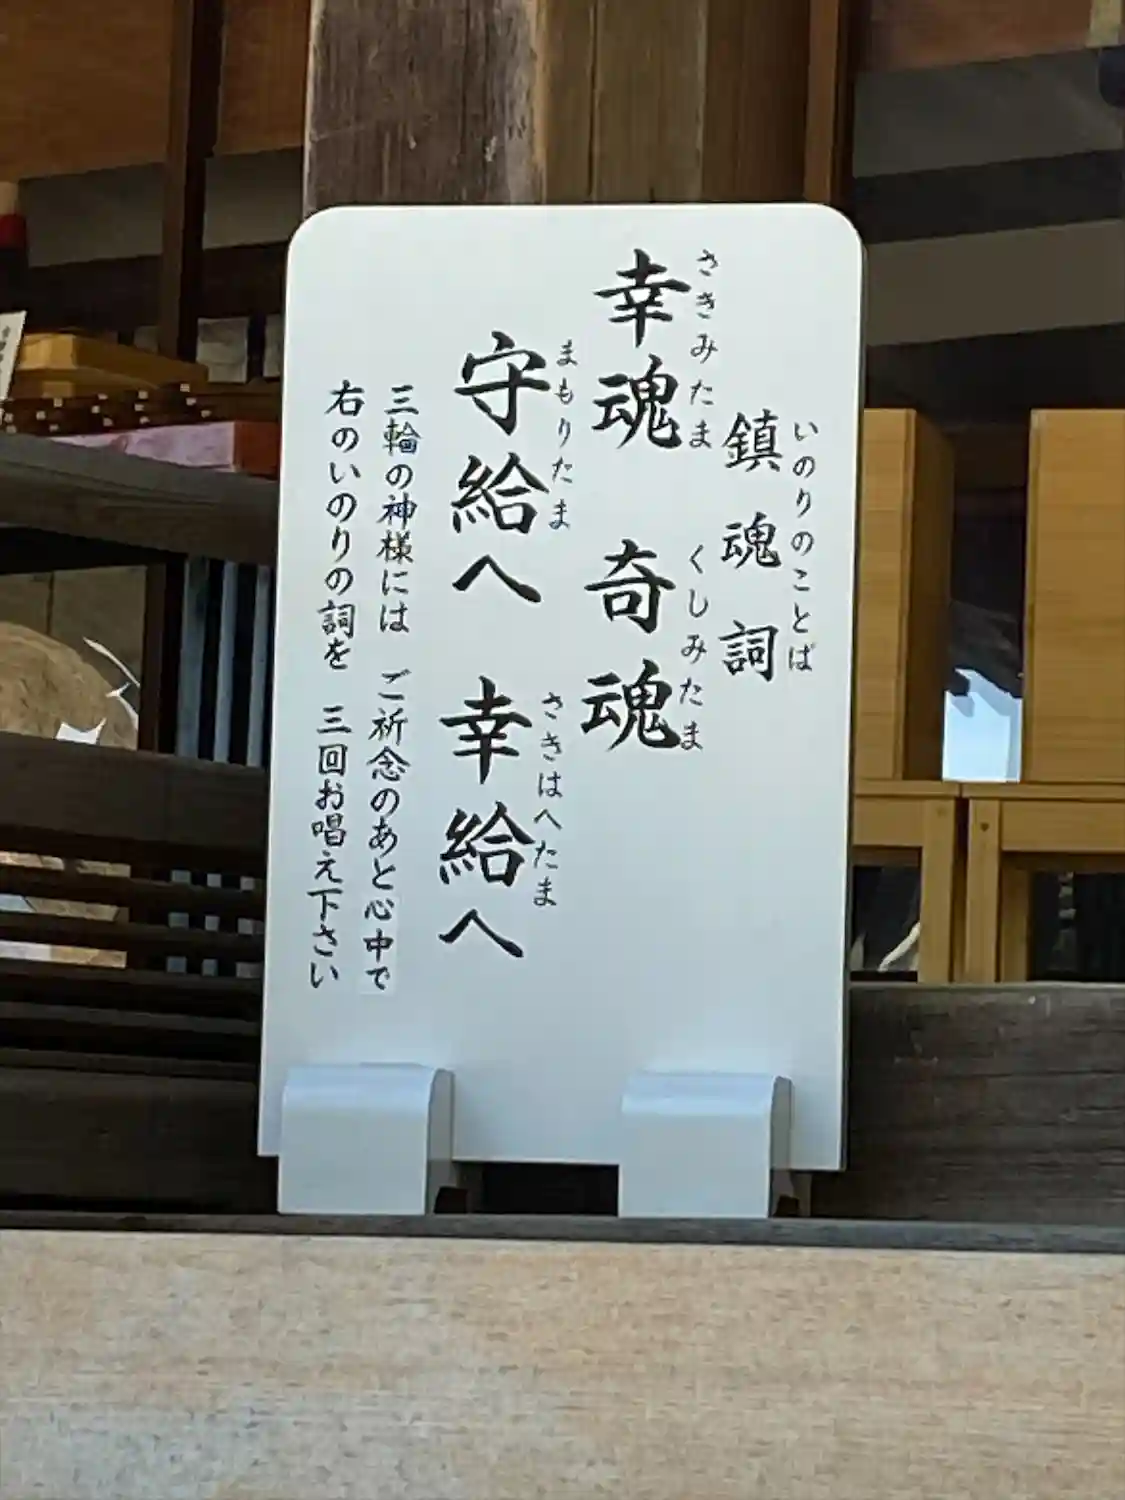 鎮魂詞
いのりのことば
幸魂 奇魂
さきみたま くしみたま
守給へ 幸給へ
まもりたま さきはへたま
三輪の神様には ご祈念のあと心中で
右のいのりの詞を 三回お唱え下さい